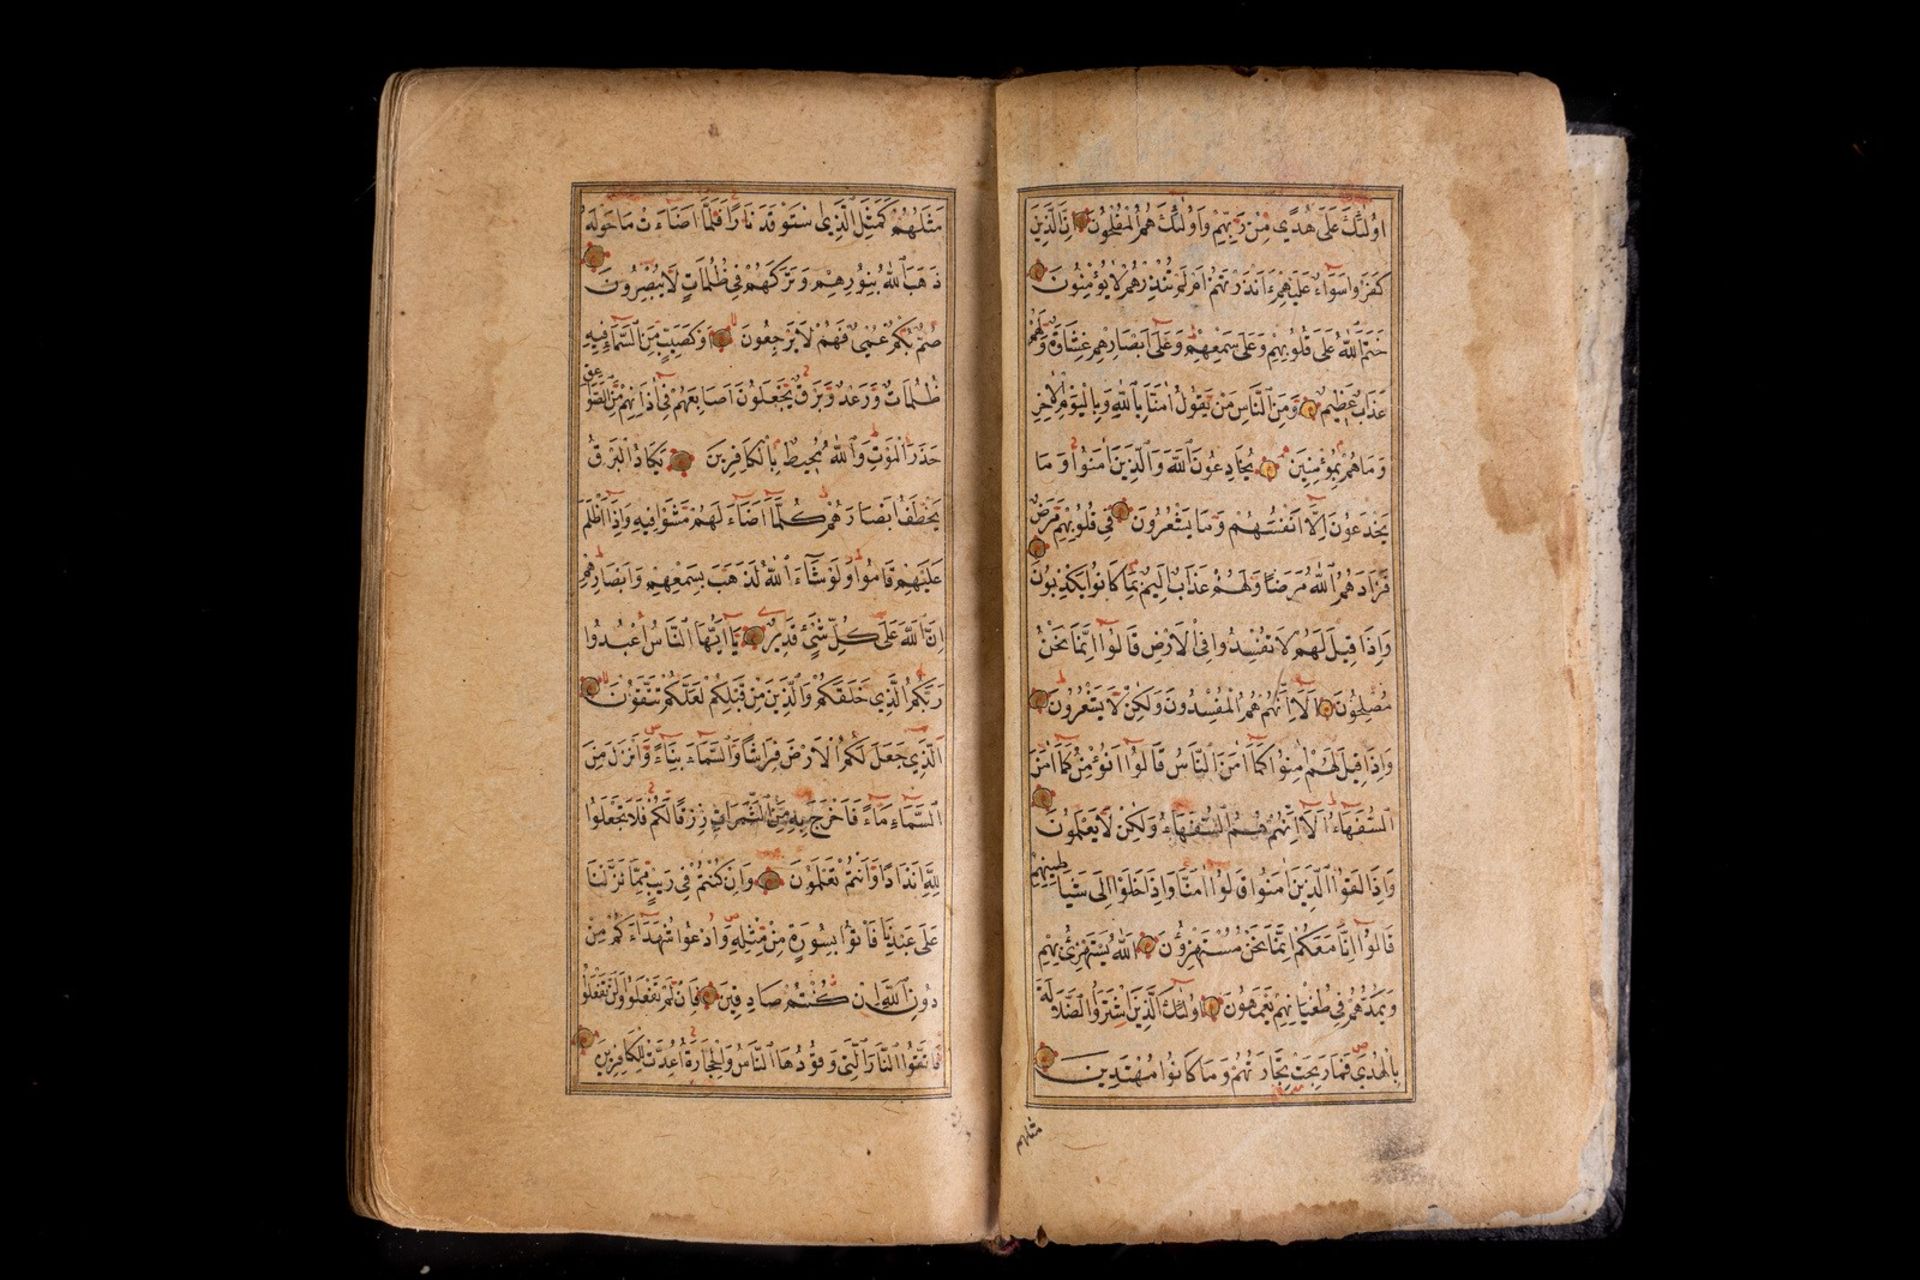 اُولٰئِكَ عَلٰى هُدًى مِنْ رَبِّهِمْ وَاُولٰئِكَ هُمُ الْمُفْلِحُونَ اِنَّ الَّذِينَ
كَفَرُوا سَوَاءٌ عَلَيْهِمْ ءَاَنْذَرْتَهُمْ اَمْ لَمْ تُنْذِرْهُمْ لَا يُؤْمِنُونَ
خَتَمَ اللّٰهُ عَلٰى قُلُوبِهِمْ وَعَلٰى سَمْعِهِمْ وَعَلٰى اَبْصَارِهِمْ غِشَاوَةٌ وَلَهُمْ
عَذَابٌ عَظِيمٌ وَمِنَ النَّاسِ مَنْ يَقُولُ اٰمَنَّا بِاللّٰهِ وَبِالْيَوْمِ الْاٰخِرِ
وَمَا هُمْ بِمُؤْمِنِينَ يُخَادِعُونَ اللّٰهَ وَالَّذِينَ اٰمَنُوا وَمَا
يَخْدَعُونَ اِلَّا اَنْفُسَهُمْ وَمَا يَشْعُرُونَ فِي قُلُوبِهِمْ مَرَضٌ
فَزَادَهُمُ اللّٰهُ مَرَضًا وَلَهُمْ عَذَابٌ اَلِيمٌ بِمَا كَانُوا يَكْذِبُونَ
وَاِذَا قِيلَ لَهُمْ لَا تُفْسِدُوا فِي الْاَرْضِ قَالُوا اِنَّمَا نَحْنُ
مُصْلِحُونَ اَلَا اِنَّهُمْ هُمُ الْمُفْسِدُونَ وَلٰكِنْ لَا يَشْعُرُونَ
وَاِذَا قِيلَ لَهُمْ اٰمِنُوا كَمَا اٰمَنَ النَّاسُ قَالُوا اَنُؤْمِنُ كَمَا اٰمَنَ
السُّفَهَاءُ اَلَا اِنَّهُمْ هُمُ السُّفَهَاءُ وَلٰكِنْ لَا يَعْلَمُونَ
وَاِذَا لَقُوا الَّذِينَ اٰمَنُوا قَالُوا اٰمَنَّا وَاِذَا خَلَوْا اِلٰى شَيَاطِينِهِمْ
قَالُوا اِنَّا مَعَكُمْ اِنَّمَا نَحْنُ مُسْتَهْزِؤُنَ اَللّٰهُ يَسْتَهْزِئُ بِهِمْ
وَيَمُدُّهُمْ فِي طُغْيَانِهِمْ يَعْمَهُونَ اُولٰئِكَ الَّذِينَ اشْتَرَوُا الضَّلَالَةَ
بِالْهُدٰى فَمَا رَبِحَتْ تِجَارَتُهُمْ وَمَا كَانُوا مُهْتَدِينَ
مثلهم
مَثَلُهُمْ كَمَثَلِ الَّذِي اسْتَوْقَدَ نَارًا فَلَمَّا اَضَاءَتْ مَا حَوْلَهُ
ذَهَبَ اللّٰهُ بِنُورِهِمْ وَتَرَكَهُمْ فِي ظُلُمَاتٍ لَا يُبْصِرُونَ
صُمٌّ بُكْمٌ عُمْيٌ فَهُمْ لَا يَرْجِعُونَ اَوْ كَصَيِّبٍ مِنَ السَّمَاءِ فِيهِ
ظُلُمَاتٌ وَرَعْدٌ وَبَرْقٌ يَجْعَلُونَ اَصَابِعَهُمْ فِي اٰذَانِهِمْ مِنَ الصَّوَاعِقِ
حَذَرَ الْمَوْتِ وَاللّٰهُ مُحِيطٌ بِالْكَافِرِينَ يَكَادُ الْبَرْقُ
يَخْطَفُ اَبْصَارَهُمْ كُلَّمَا اَضَاءَ لَهُمْ مَشَوْا فِيهِ وَاِذَا اَظْلَمَ
عَلَيْهِمْ قَامُوا وَلَوْ شَاءَ اللّٰهُ لَذَهَبَ بِسَمْعِهِمْ وَاَبْصَارِهِمْ
اِنَّ اللّٰهَ عَلٰى كُلِّ شَيْءٍ قَدِيرٌ يَا اَيُّهَا النَّاسُ اعْبُدُوا
رَبَّكُمُ الَّذِي خَلَقَكُمْ وَالَّذِينَ مِنْ قَبْلِكُمْ لَعَلَّكُمْ تَتَّقُونَ
اَلَّذِي جَعَلَ لَكُمُ الْاَرْضَ فِرَاشًا وَالسَّمَاءَ بِنَاءً وَاَنْزَلَ مِنَ
السَّمَاءِ مَاءً فَاَخْرَجَ بِهِ مِنَ الثَّمَرَاتِ رِزْقًا لَكُمْ فَلَا تَجْعَلُوا
لِلّٰهِ اَنْدَادًا وَاَنْتُمْ تَعْلَمُونَ وَاِنْ كُنْتُمْ فِي رَيْبٍ مِمَّا نَزَّلْنَا
عَلٰى عَبْدِنَا فَأْتُوا بِسُورَةٍ مِنْ مِثْلِهِ وَادْعُوا شُهَدَاءَكُمْ مِنْ
دُونِ اللّٰهِ اِنْ كُنْتُمْ صَادِقِينَ فَاِنْ لَمْ تَفْعَلُوا وَلَنْ تَفْعَلُوا
فَاتَّقُوا النَّارَ الَّتِي وَقُودُهَا النَّاسُ وَالْحِجَارَةُ اُعِدَّتْ لِلْكَافِرِينَ